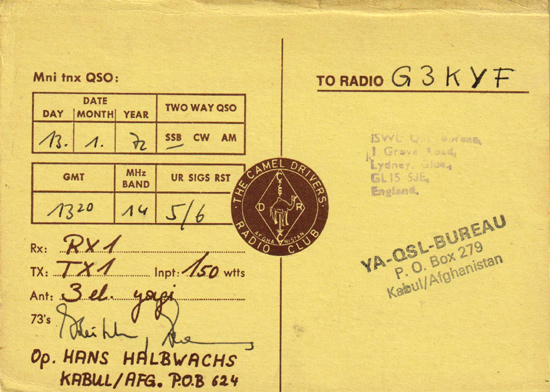 Mni tnx QSO:
DATE
DAY MONTH YEAR
TWO WAY QSO
13. 1. 72
SSB CW AM
GMT
MHz BAND
UR SIGS RST
1320 14 5/6
Rx: RX1
TX: TX1 Inpt: 150 wtts
Ant: 3 el. yagi
73's
Op. HANS HALBWACHS
KABUL/AFG. P.O.B 624
THE CAMEL DRIVERS'
RADIO CLUB
D R
AFGHANISTAN
TO RADIO G3KYF
ISWL
1 Grove Road,
Lydney, Glos,
GL15 5JE,
England.
YA-QSL-BUREAU
P. O. Box 279
Kabul/Afghanistan